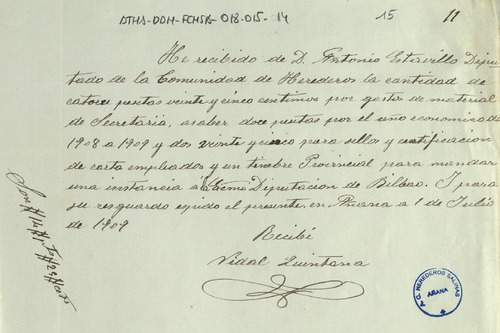 ATHA-DDH-FCHSA-018-015-14
15
11
He recibido de D. Antonio Estavillo Dipu-
tado de la Comunidad de Herederos la cantidad de
catorce pesetas veinte y cinco centimos por gastos de material
de Secretaria, a saber doce pesetas por el año economico de
1908 a 1909 y dos veinte y cinco para sellos y certificacion
de carta empleados y un timbre Provincial para mandar
una instancia a Exma Diputacion de Bilbao. I para
su resguardo espido el presente en Añana a 1 de Julio
de 1909
Recibí
Vidal Quintana
Son
C. HEREDEROS SALINAS
AÑANA